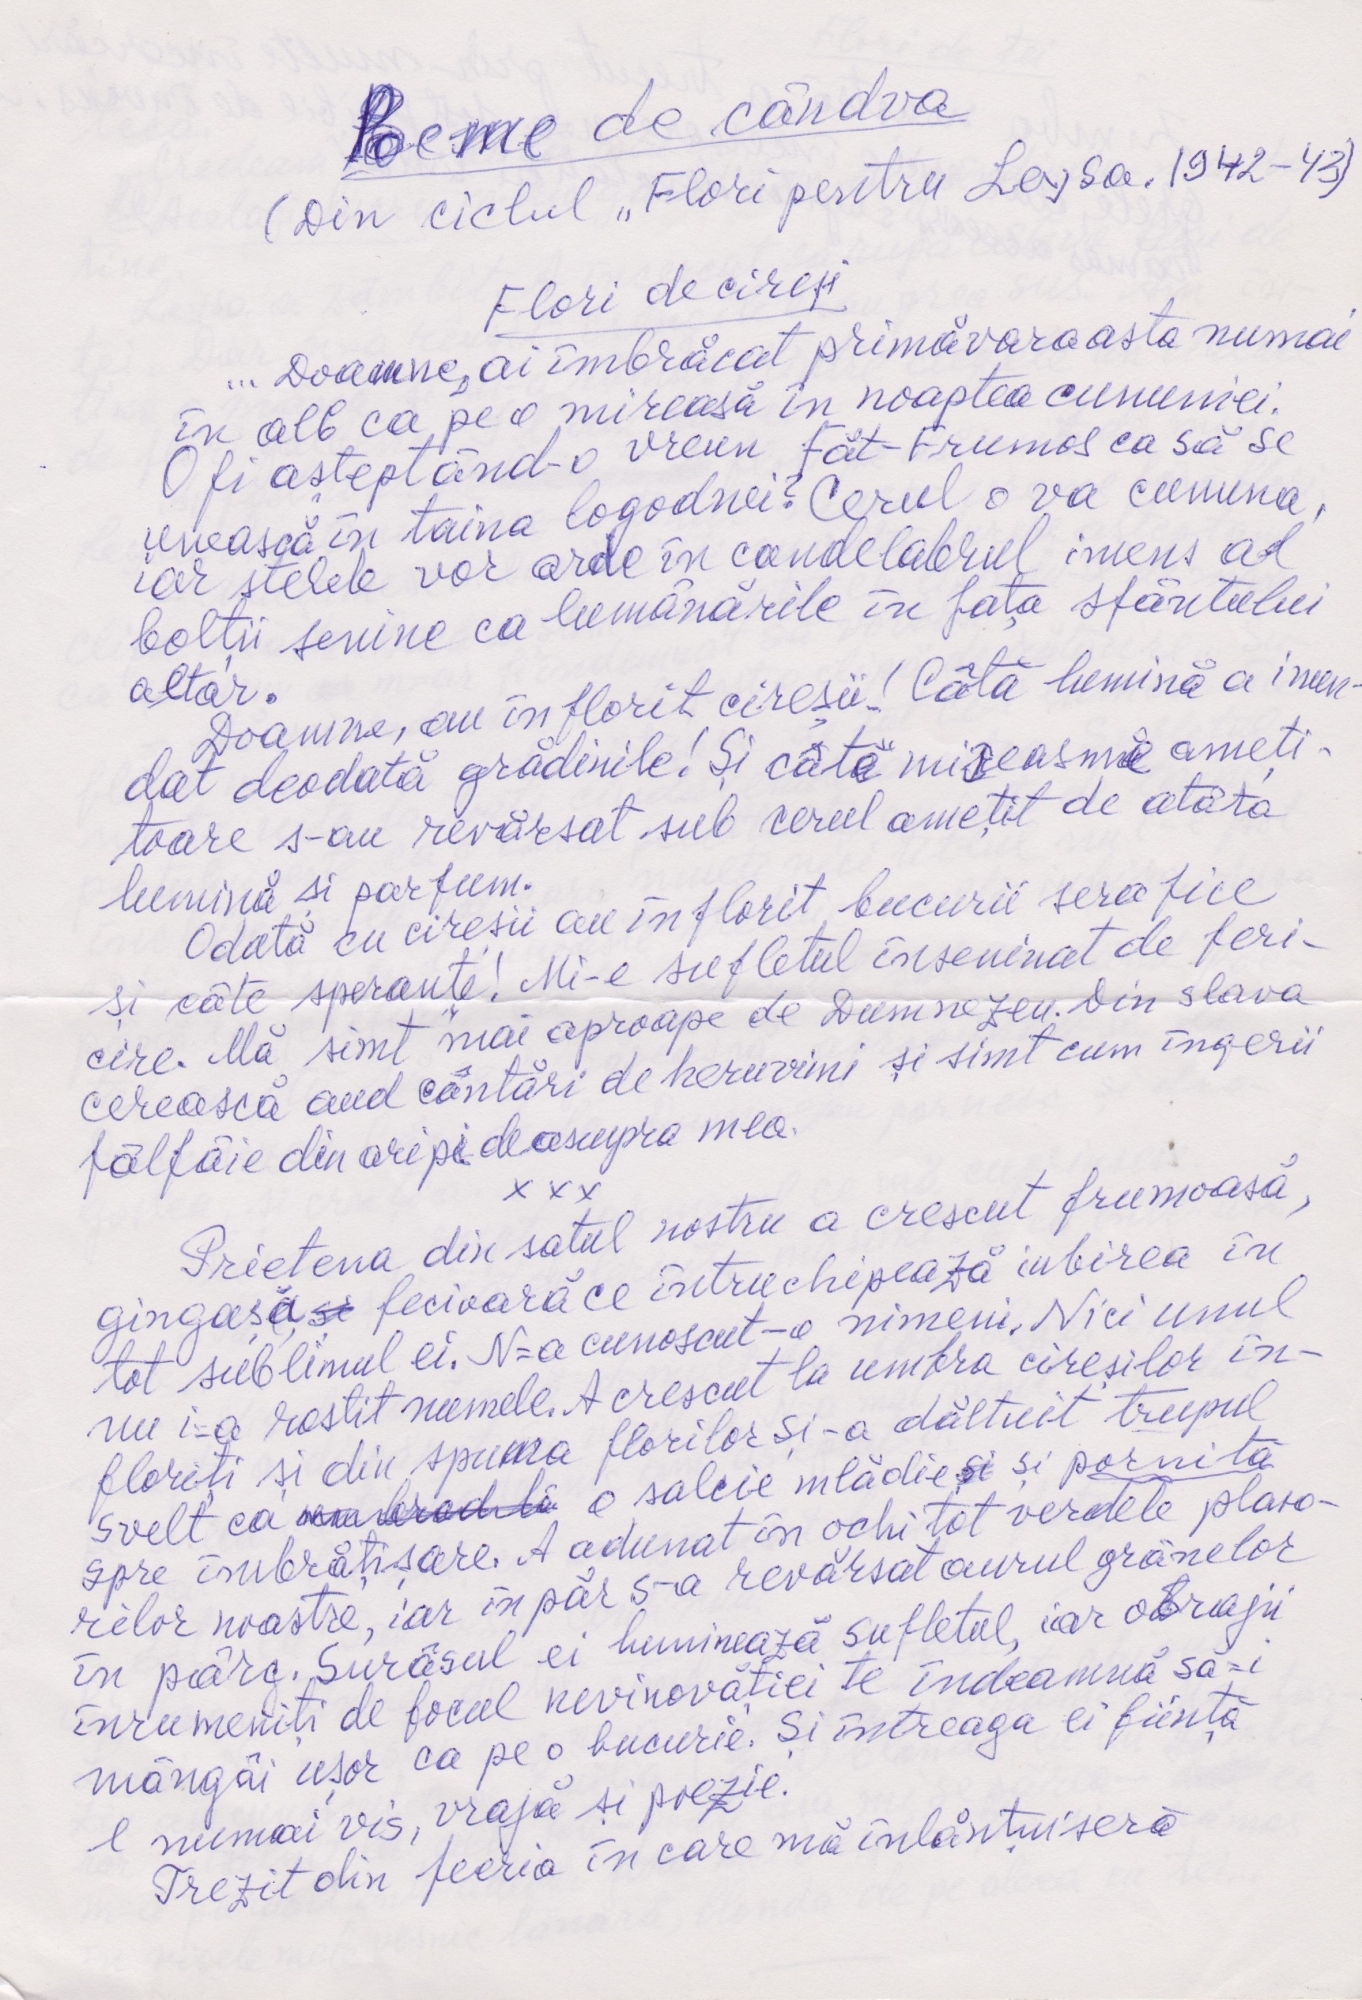 Poeme de cândva
(Din ciclul „Flori pentru Leysa. 1942-43)
Flori de cireși
... Doamne, ai îmbrăcat primăvara asta numai
în alb ca pe o mireasă în noaptea cununiei.
O fi așteptând-o vreun Făt-Frumos ca să se
unească în taina logodnei? Cerul o va cununa,
iar stelele vor arde în candelabrul imens al
bolții senine ca lumânările în fața sfântului
altar.
Doamne, au înflorit cireșii! Câtă lumină a inun-
dat deodată grădinile! Și câtă mireasmă ameți-
toare s-au revărsat sub cerul amețit de atâta
lumină și parfum.
Odată cu cireșii au înflorit bucurii serafice
și câte speranțe! Mi-e sufletul înseninat de feri-
cire. Mă simt mai aproape de Dumnezeu. Din slava
cerească aud cântări de heruvimi și simt cum îngerii
fâlfâie din aripi deasupra mea.
x x x
Prietena din satul nostru a crescut frumoasă,
gingașă, și fecioară ce întruchipează iubirea în
tot sublimul ei. N-a cunoscut-o nimeni. Nici unul
nu i-a rostit numele. A crescut la umbra cireșilor în-
floriți și din spuma florilor și-a dăltuit trupul
svelt ca o salcie mlădie și pornită
spre îmbrățișare. A adunat în ochi tot verdele plaiu-
rilor noastre, iar în păr s-a revărsat aurul grânelor
în pârg. Surâsul ei luminează sufletul, iar obrajii
înrumeniți de focul nevinovăției te îndeamnă să-i
mângâi ușor ca pe o bucurie. Și întreaga ei ființă
e numai vis, vrajă și poezie.
Trezit din feeria în care mă înlănțuiseră